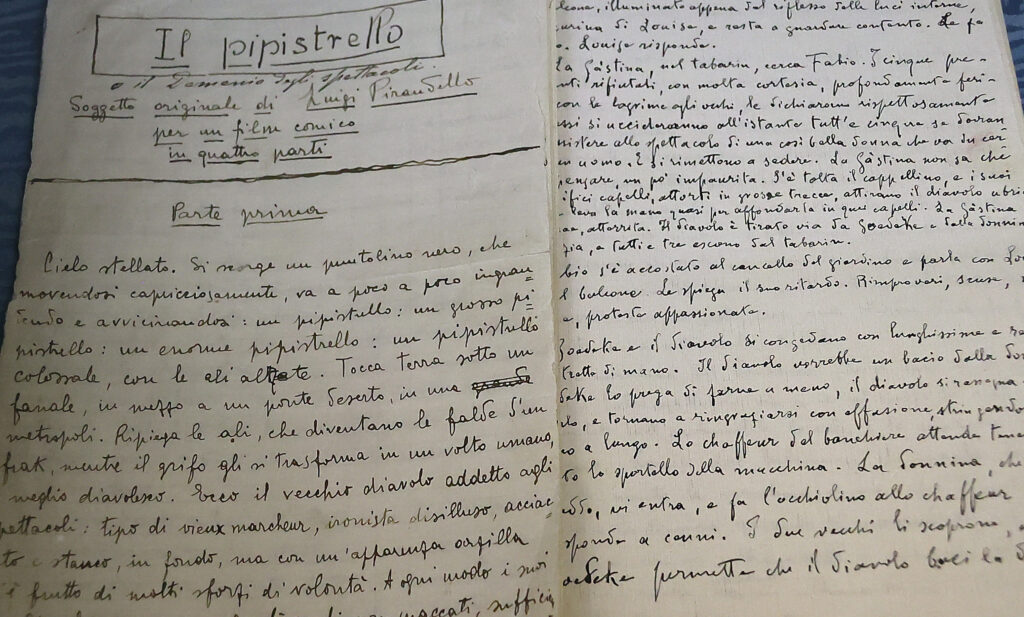 Il pipistrello
o il Demonio degli spettacoli.
Soggetto originale di Luigi Pirandello
per un film comico
in quattro parti
Parte prima
Cielo stellato. Si scorge un puntolino nero, che
movendosi capricciosamente, va a poco a poco ingran-
dendo e avvicinandosi: un pipistrello: un grosso pi-
pistrello: un enorme pipistrello: un pipistrello
colossale, con le ali alzate. Tocca terra sotto un
fanale, in mezzo a un ponte deserto, in una grande
metropoli. Ripiega le ali, che diventano le falde d'un
frak, mentre il grifo gli si trasforma in un volto umano,
meglio diavolesco. Ecco il vecchio diavolo addetto agli
spettacoli: tipo di vieux marcheur, ironista disilluso, acciac-
to e stanco, in fondo, ma con un'apparenza arzilla
è frutto di molti sforzi di volontà. A ogni modo i suoi
maccati, suffici
leone, illuminato appena dal riflesso delle luci interne,
di Louise, e resta a guardare contento. Le fa
o. Louise risponde.
La Gástina, nel tabarin, cerca Fabio. I cinque pre-
nti rifiutati, con molta cortesia, profondamente feri-
con le lagrime agli occhi, le dichiarano rispettosamente
ssi si uccideranno all'istante tutt'e cinque se dovran
nistere allo spettacolo di una così bella donna che va in cer
un uomo. E si rimettono a sedere. La Gástina non sa che
pensare, un po' impaurita. S'è tolta il cappellino, e i suoi
ifici capelli, attorti in grosse trecce, attirano il diavolo ubria
leva la mano quasi per affondarla in quei capelli. La Gástina
atterrita. Il diavolo è tirato via da Goedeke e dalla donnin
zia, e tutti e tre escono dal tabarin.
bio s'è accostato al cancello del giardino e parla con Lou
l balcone. Le spiega il suo ritardo. Rimproveri, scuse,
e, protesta appassionata.
Goedeke e il diavolo si congedano con lunghissime e
strette di mano. Il diavolo vorrebbe un bacio dalla don
deke lo prega di farne a meno, il diavolo si rassegna
lo, e tornano a ringraziarsi con effusione, stringendo
o a lungo. Lo chaffeur del banchiere attende tenen
to lo sportello della macchina. La donnina, che
vi entra, e fa l'occhiolino allo chaffeur
sponde a cenni. I due vecchi li scoprono,
oedeke permette che il diavolo baci la d